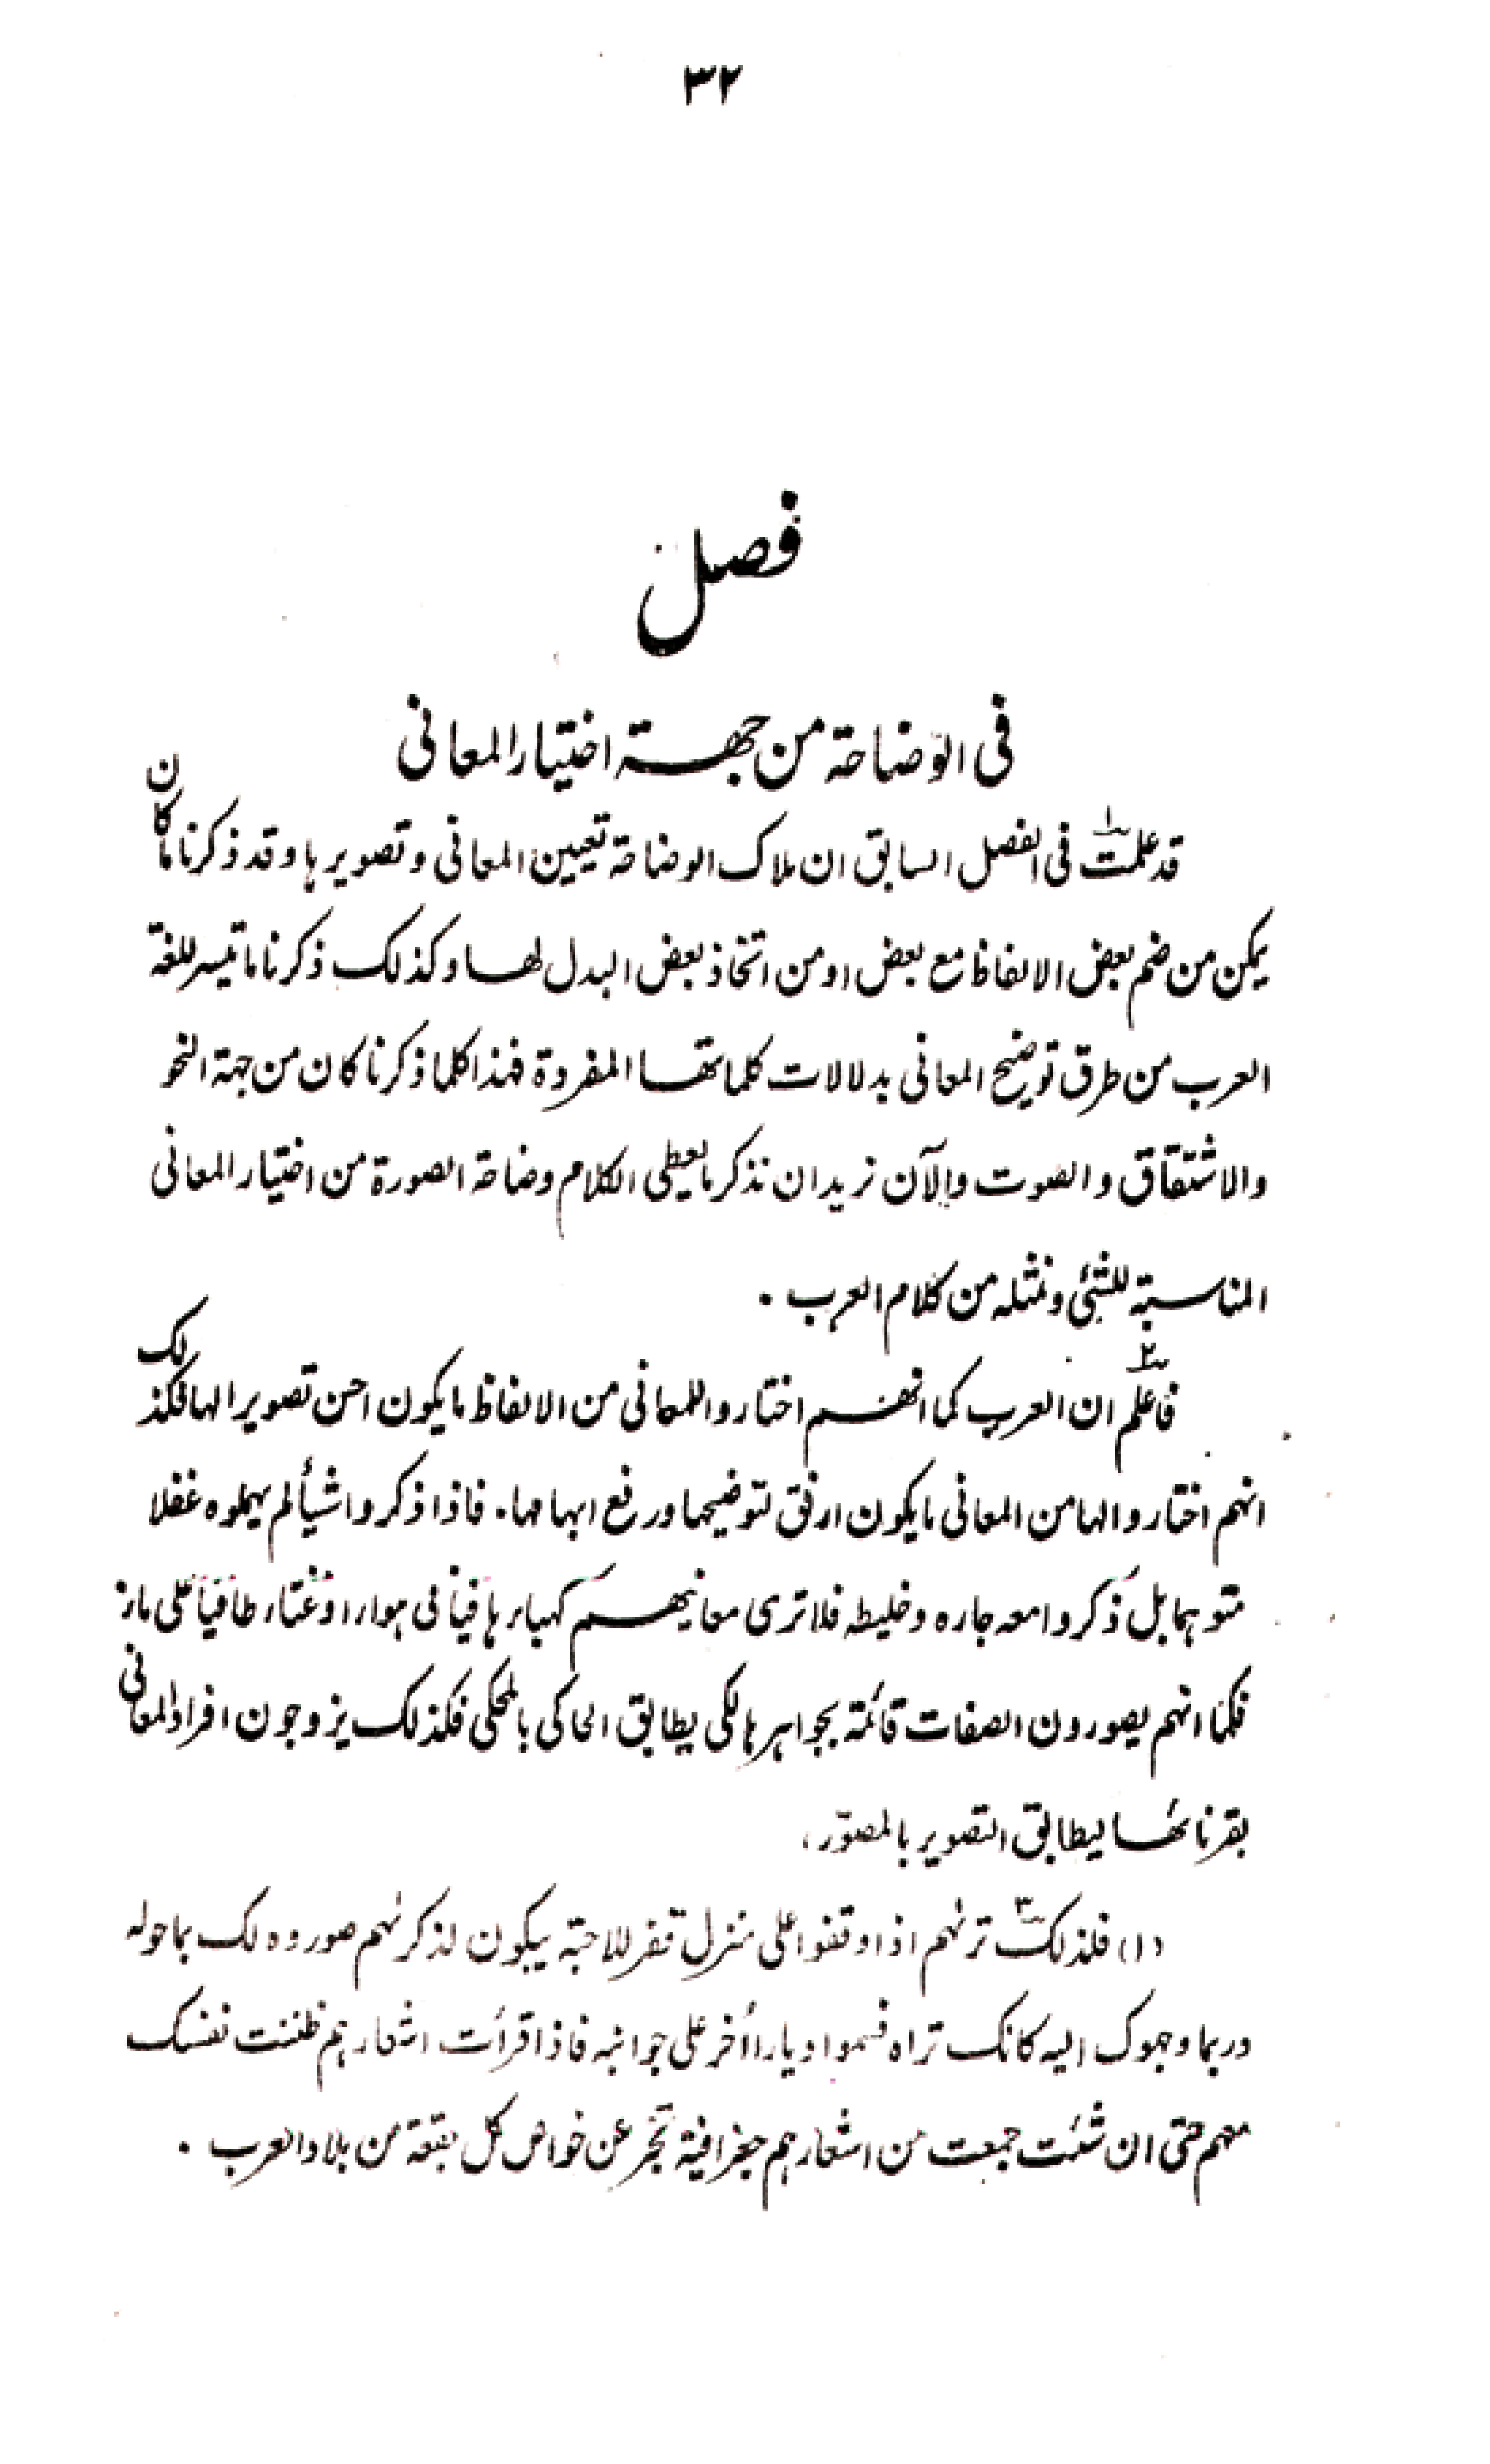 ٣٢
فصل
فى الوضاحة من جهة اختيار المعانى
قد علمت فى الفصل السابق ان ملاك الوضاحة تعيين المعانى وتصويرها وقد ذكرنا ما كان
يمكن من ضم بعض الالفاظ مع بعض او من اتخاذ بعض البدل لها وكذلك ذكرنا ما تيسر للغة
العرب من طرق توضيح المعانى بدلالات كلماتها المفردة فهذا كلما ذكرنا كان من جهة النحو
والاشتقاق والصوت والآن نريد ان نذكر ما يعطى الكلام وضاحة الصورة من اختيار المعانى
المناسبة للشئ ونمثله من كلام العرب ٠
٢ فاعلم ان العرب كما انهم اختاروا للمعانى من الالفاظ ما يكون احسن تصويرا لها فكذلك
انهم اختاروا لها من المعانى ما يكون ارفق لتوضيحها ورفع ابهامها. فاذا ذكروا شيأ لم يهملوه غفلا
متوهما بل ذكروا معه جاره وخليطه فلا ترى معانيهم كهباء هافيأ فى هواء او غثاء طافيأ على ماء
فكما انهم يصورون الصفات قائمة بجواهرها لكى يطابق الحاكى بالمحكى فكذلك يزوجون افراد المعانى
بقرنائها ليطابق التصوير بالمصوّر،
(١) فلذلك ٣ ترٰهم اذا وقفوا على منزل قفر للاحبة يبكون لذكرٰهم صوروه لك بما حوله
وربما وجهوك اليه كانك تراه فسموا ديارا أخر على جوانبه فاذا قرأت اشعارهم ظننت نفسك
معهم حتى ان شئت جمعت من اشعارهم جغرافية تخبر عن خواص كل بقعة من بلاد العرب ٠